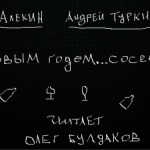 АЛЕХИН АНДРЕЙ ТУРКИ
ОВЫМ ГОДЕМ...СОСЕ
ЧЫТАЕТ
ОЛЕГ БУЛДАКОВ